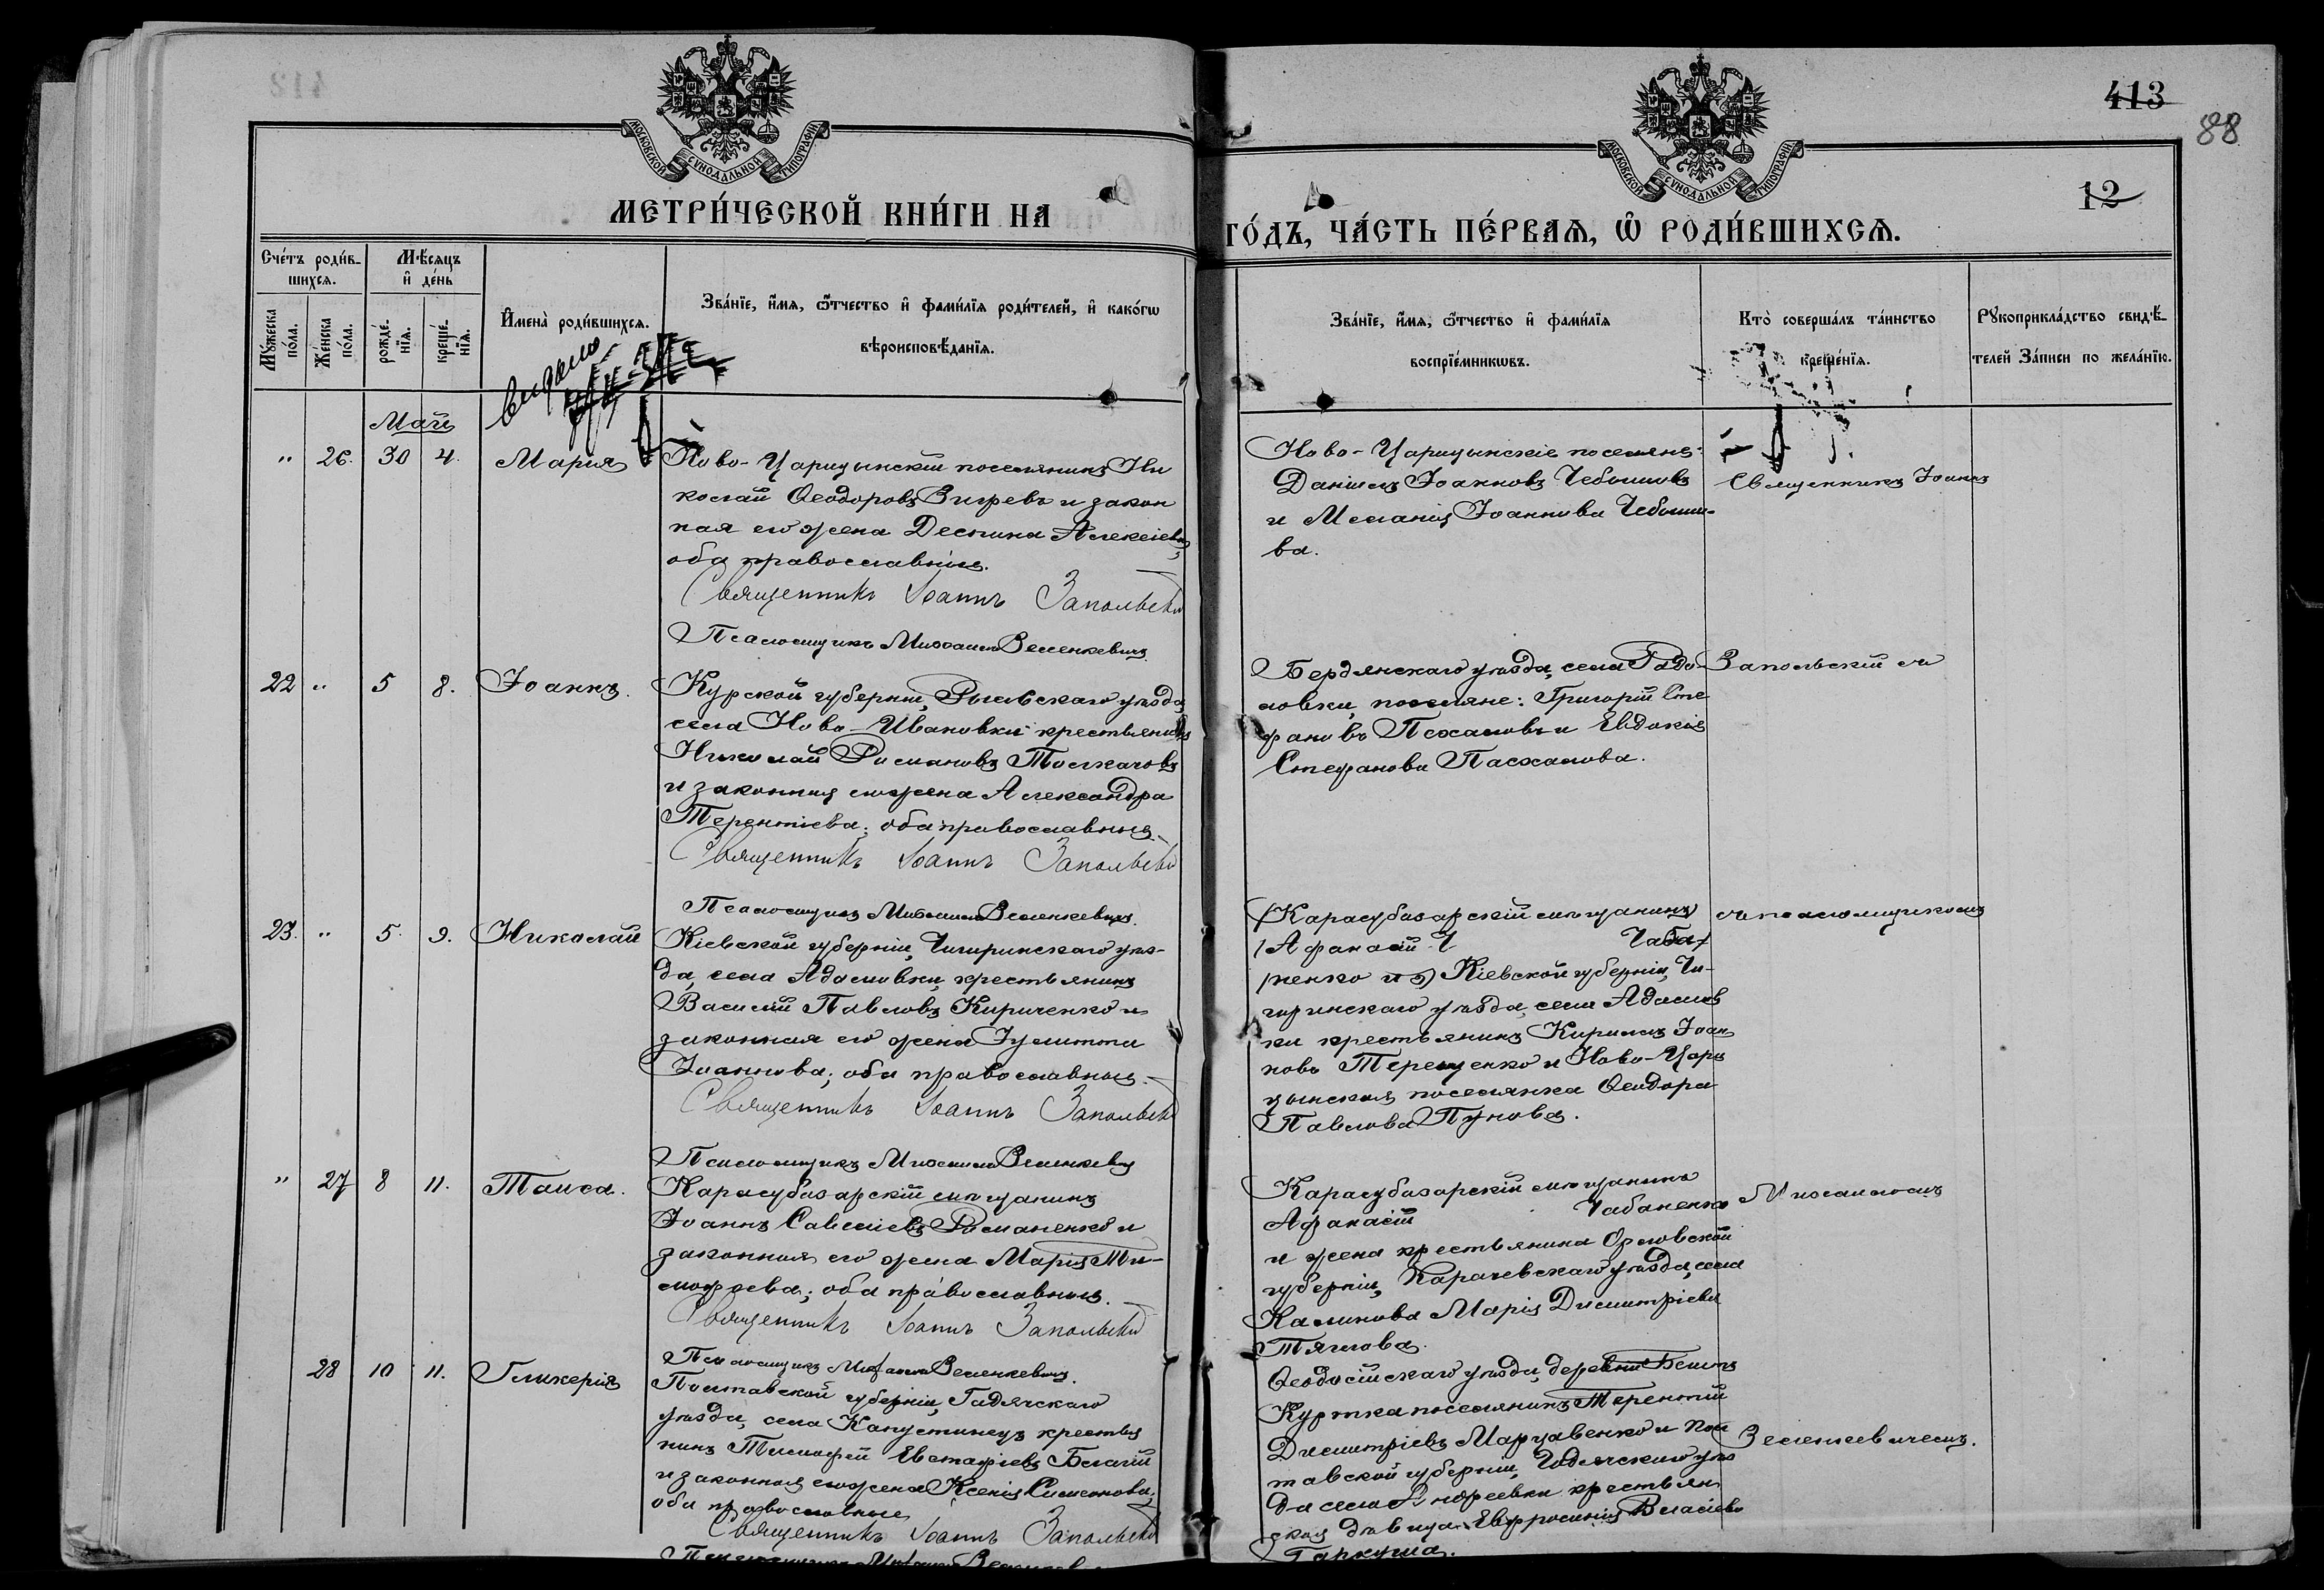 413
88
12
МОСКОВСКОЙ СУНОДАЛЬНОЙ ТИПОГРАФІИ
МОСКОВСКОЙ СУНОДАЛЬНОЙ ТИПОГРАФІИ
МЕТРИ́ЧЕСКОЙ КНИ́ГИ НА
ГО́ДЪ, ЧА́СТЬ ПЕ́РВАЯ, Ѡ РОДИ́ВШИХСЯ.
Сче́тъ роди́в-
шихся.
Мѣ́сяцъ
и҆ де́нь
Мꙋ́жеска по́ла.
Же́нска по́ла.
рожде́-нїя.
креще́-нїя.
И҆мена̀ роди́вшихся.
Зва́нїе, и҆́мя, ѻ҆́тчество и҆ фами́лїя роди́телей, и҆ како́гѡ
вѣроисповѣ́данїя.
Зва́нїе, и҆́мя, ѻ҆́тчество и҆ фами́лїя
воспрїе́мникѡвъ.
Кто̀ соверша́лъ та́инство
креще́нїя.
Рꙋкоприкла́дство свидѣ́-
телей За́писи по жела́нїю.
Май
" 26. 30 4. Марія
Ново-Царицынскій поселянинъ Ни
колай Ѳеодоровъ и закон
ная его жена Деспина Алексіева,
оба православные.
Священникъ Іоаннъ Запольскій
Псаломщикъ Михаилъ Зеленкевичъ
Ново-Царицынскіе поселяне:
Даніилъ Іоанновъ Чебышовъ
и Меланія Іоаннова Чебышо-
ва.
Священникъ Іоаннъ
22 " 5 8. Іоаннъ.
Курской губерніи, Рыльскаго уѣзда,
села Ново-Ивановки крестьянинъ
Николай Романовъ Толкачовъ
и законная его жена Александра
Терентіева; оба православные.
Священникъ Іоаннъ Запольскій
Псаломщикъ Михаилъ Зеленкевичъ.
Бердянскаго уѣзда, села Радо-
ловки, поселяне: Григорій Сте
фановъ Пасхаловъ и Евдокія
Стефанова Пасхалова.
Запольскій съ
23. " 5. 9. Николай
Кіевской губерніи, Чигиринскаго уѣз-
да, села Адамовки, крестьянинъ
Василій Павловъ Кириченко и
законная его жена Іулитта
Іоаннова; оба православные.
Священникъ Іоаннъ Запольскій
Псаломщикъ Михаилъ Зеленкевичъ
(Карасубазарскій мѣщанинъ)
(Афанасій Чаба
ненко и) Кіевской губерніи, Чи-
гиринскаго уѣзда, села Адамов
ки крестьянинъ Кириллъ Іоан
новъ Терещенко и Ново-Цари
цынская поселянка Ѳеодора
Павлова Пунова.
съ псаломщикомъ
" 27 8 11. Таиса.
Карасубазарскій мѣщанинъ
Іоаннъ Савеліевъ Романенко и
законная его жена Марія Ти-
моѳеева; оба православные.
Священникъ Іоаннъ Запольскій
Псаломщикъ Михаилъ Зеленкевичъ.
Карасубазарскій мѣщанинъ
Афанасій Чабаненко
и жена крестьянина Орловской
губерніи, Карачевскаго уѣзда, села
Калинова Марія Димитріева
Тяглова.
Михаиломъ
28 10 11. Гликерія
Полтавской губерніи, Гадячскаго
уѣзда, села Капустинецъ крестья
нинъ Тимофей Евстафіевъ Белаій
и законная его жена Ксенія Симеонова;
оба православные
Священникъ Іоаннъ Запольскій
Псаломщикъ Михаилъ
Ѳеодосійскаго уѣзда, деревни Бешъ
Куртка поселянинъ Терентій
Димитріевъ Марцавенко и Пол
тавской губерніи, Гадячскаго уѣз
да села Андреевки крестьян
ская дѣвица Евфросинія Власіева
Гаркуша.
Зеленкевичемъ.